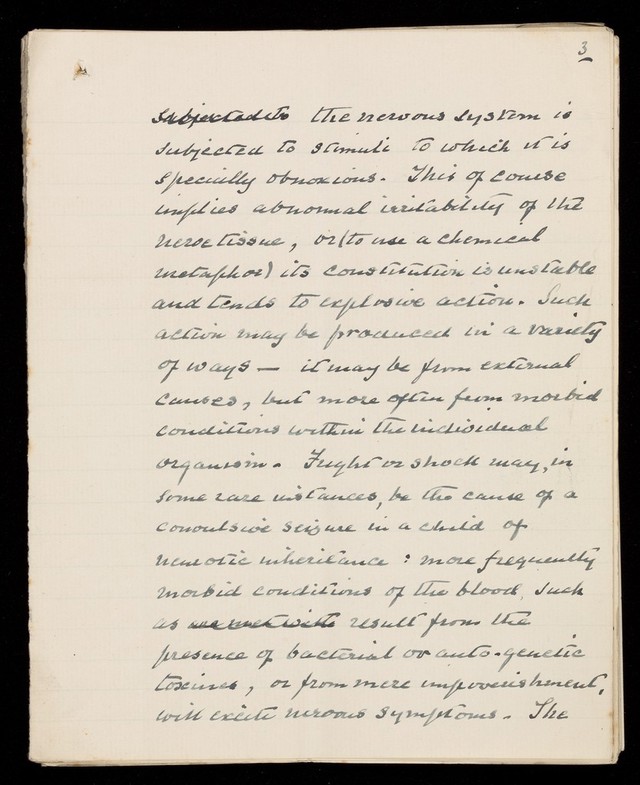 3
subjected to the nervous system is
subjected to stimuli to which it is
specially obnoxious. This of course
implies abnormal irritability of the
nerve tissue, or (to use a chemical
metaphor) its constitution is unstable
and tends to explosive action. Such
action may be produced in a variety
of ways — it may be from external
causes, but more often from morbid
conditions within the individual
organism. Fright or shock may, in
some rare instances, be the cause of a
convulsive seizure in a child of
neurotic inheritance: more frequently
morbid conditions of the blood, such
as are met with result from the
presence of bacterial or auto-genetic
toxines, or from mere impoverishment,
will excite nervous symptoms. The